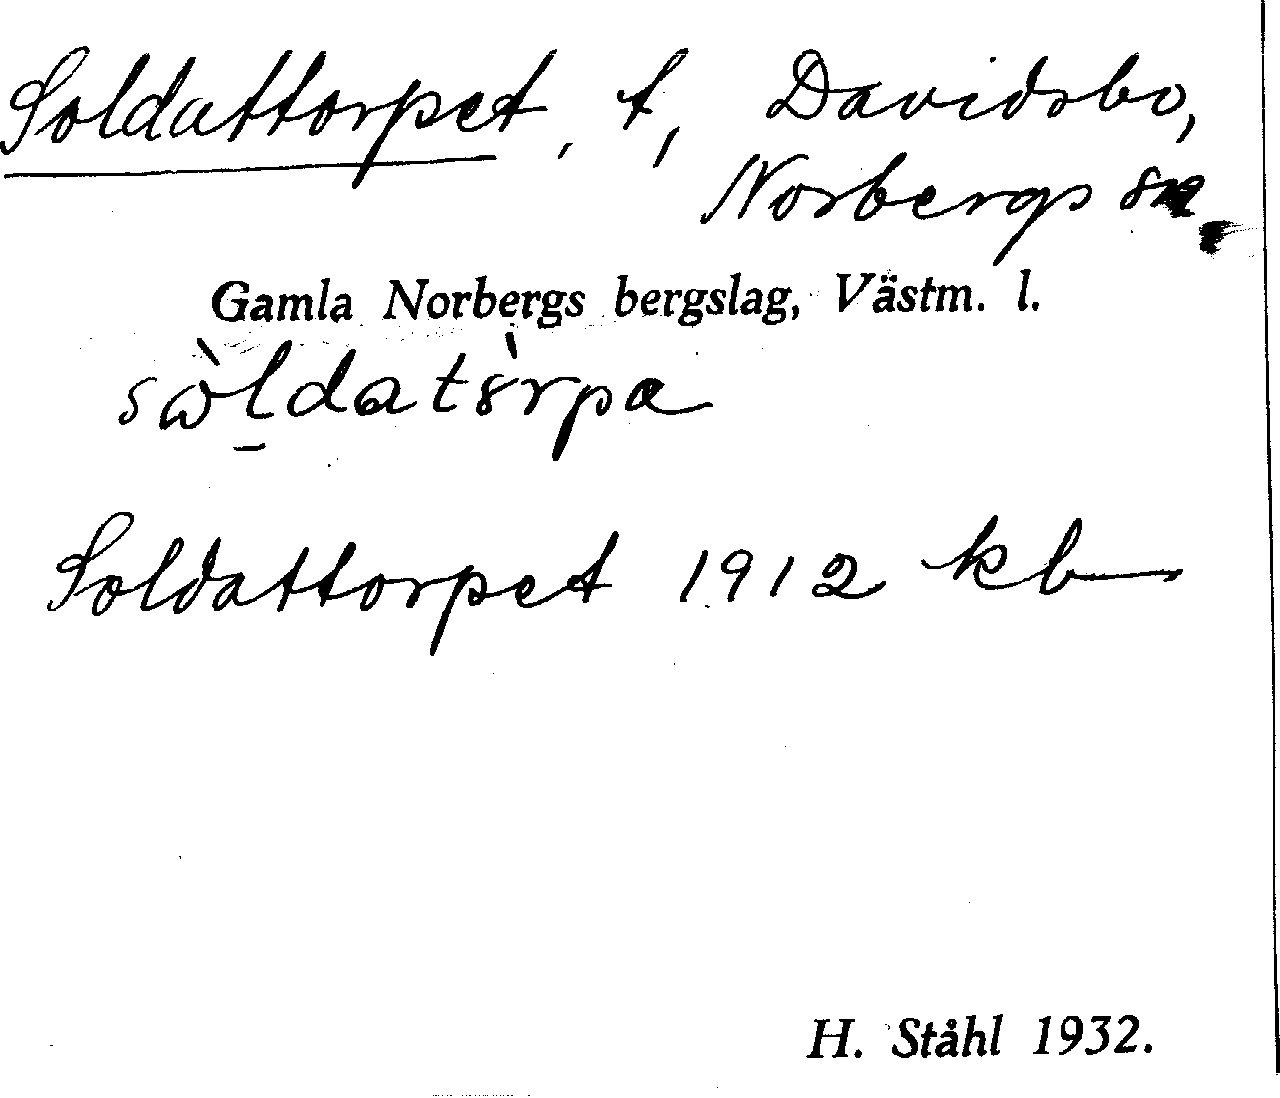 Soldattorpet, t, Davidsbo,
Norbergs sn
Gamla Norbergs bergslag, Västm. l.
Soldattorpet 1912 kb
H. Ståhl 1932.